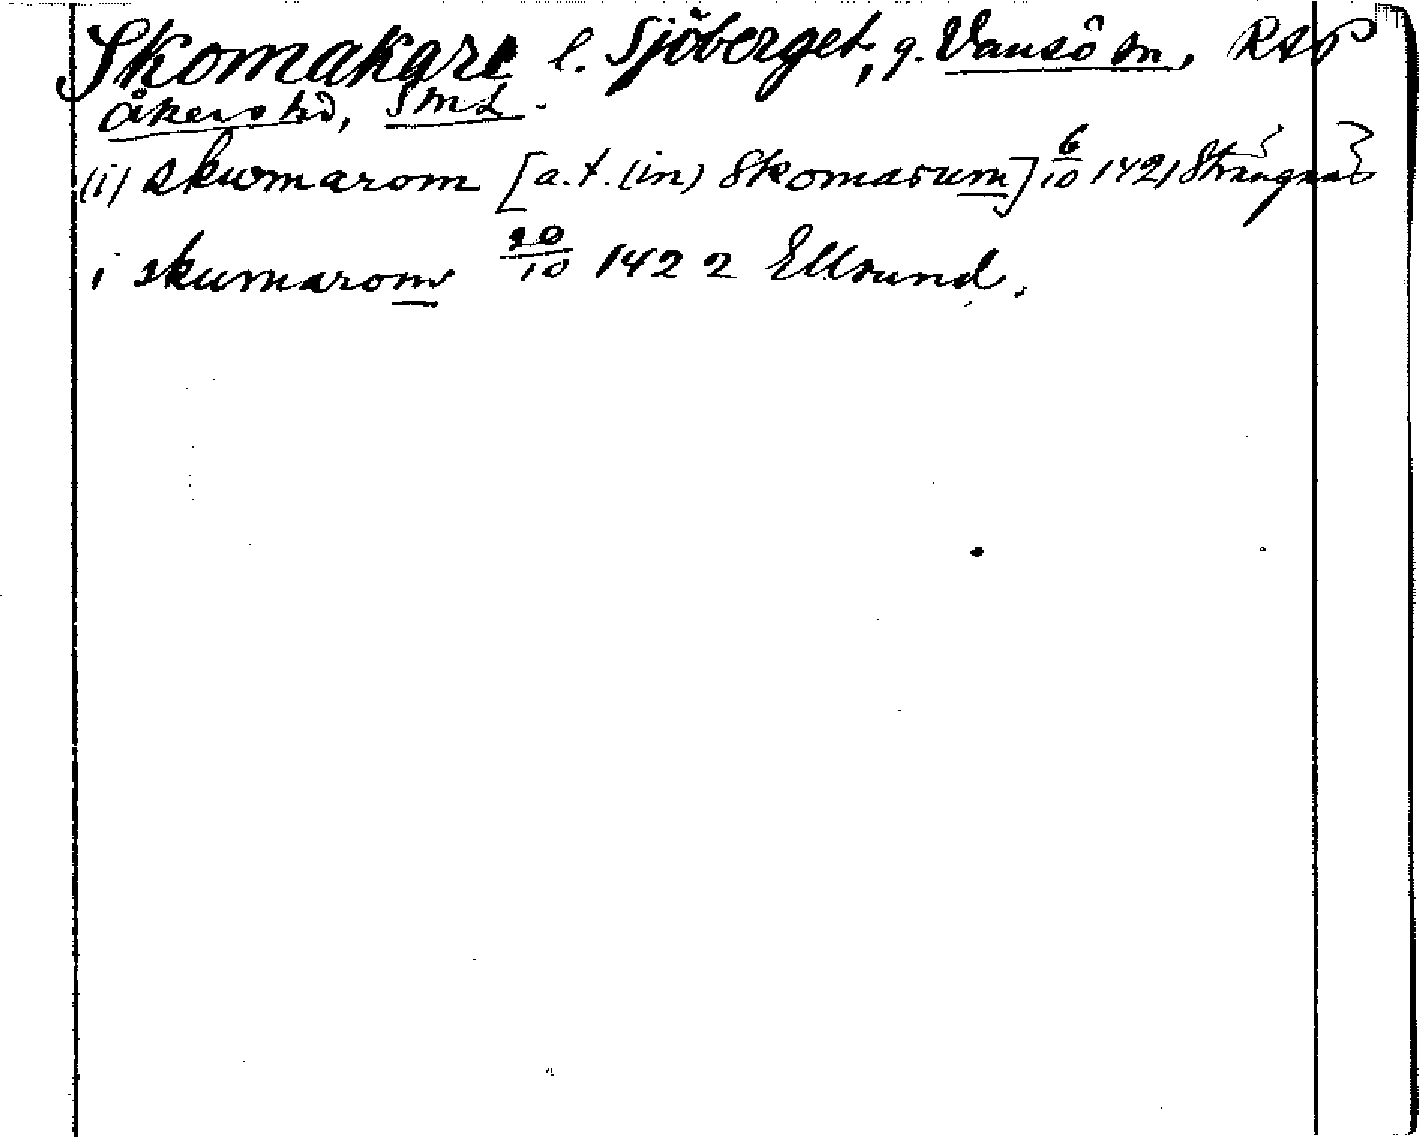 Skomakare l. Sjöberget, g. Vansö sn, RAP
Åkers hd, Sml.
(i) skwmarom [a.t. (in) Skomarum] 6/10 1421 Strängnäs
i skumarom 20/10 1422 Ellsund.